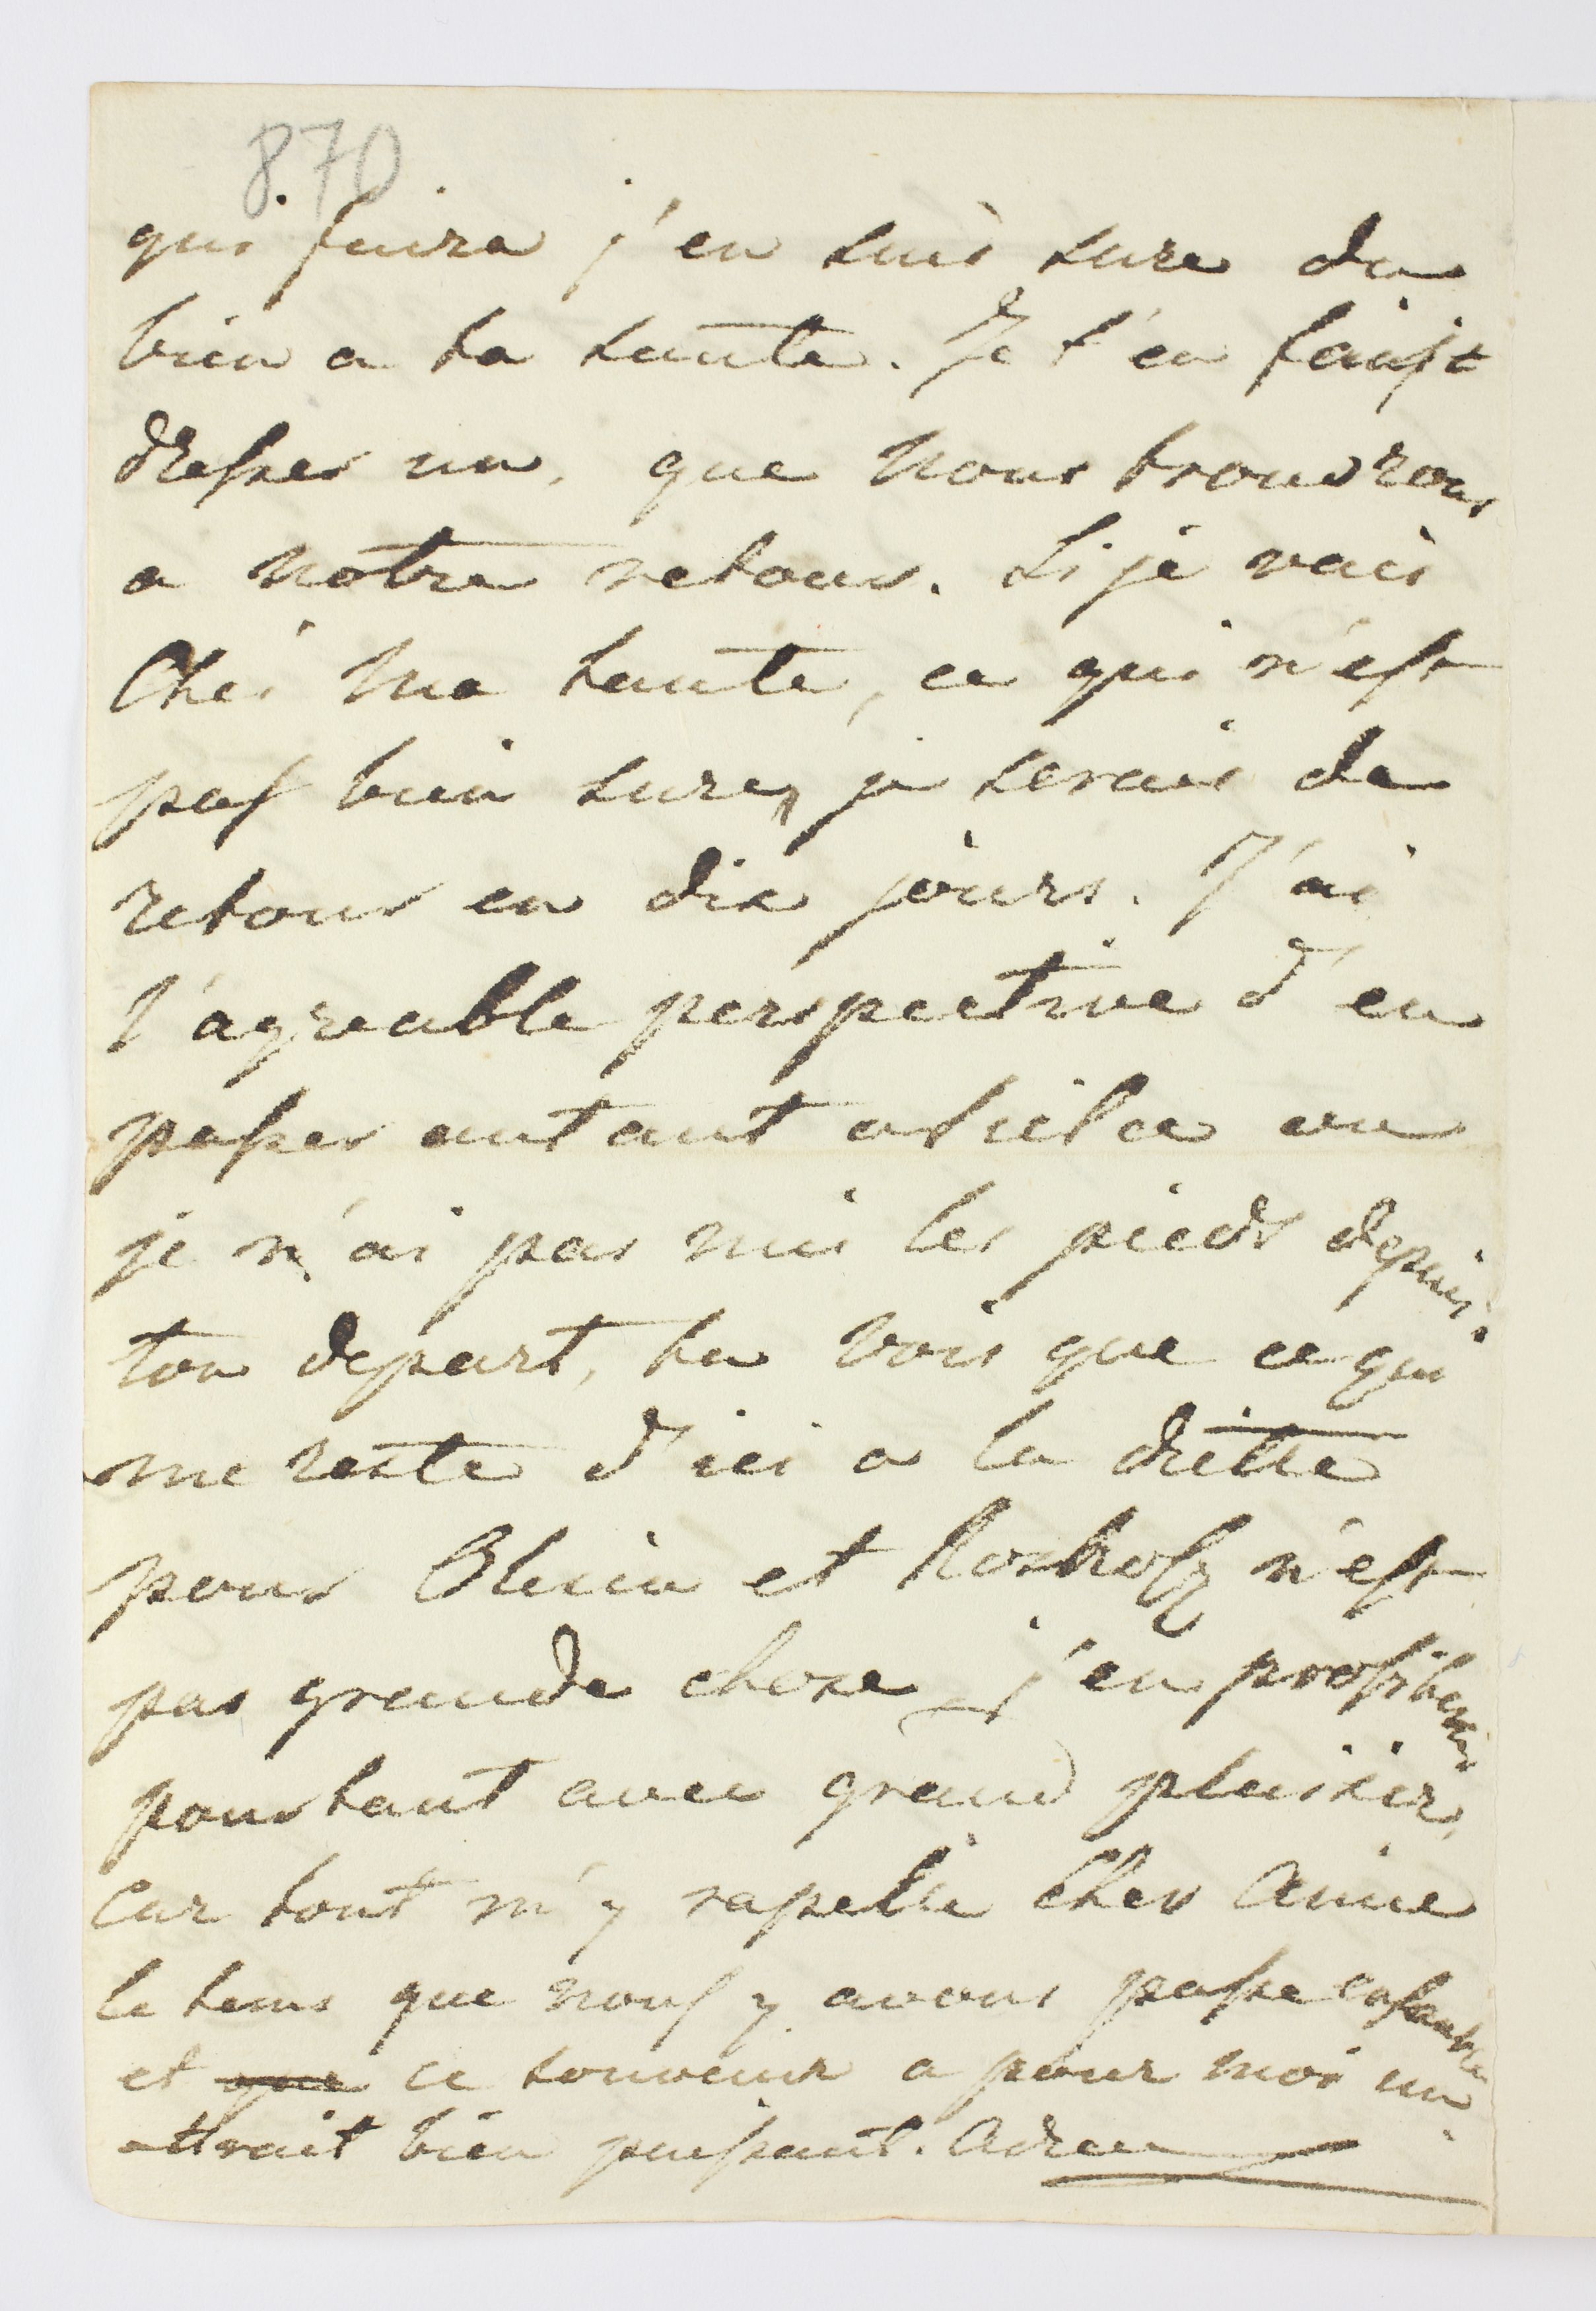 870
qui faira j'en suis sure du
bien a ta sante. Je t'en fais
dresser un, que nous trouvrons
a notre retour. Si je vais
Chez ma tante, ce qui n'est
pas bien sure, je serais de
retour en dix jours. J'ai
l'agreable perspective d'en
passer autant a ou
je n'ai pas mis les pieds depuis
ton depart, tu vois que ce qui
me reste d'ici a la diette
pour et n'est
pas grande chose j'en profiterai
pourtant avec grand plaisir,
Car tout m'y rapelle Cher Amie
le tems que nous y avons passe ensemble
et ce souvenir a pour moi un
attrait bien puissant. Adieu